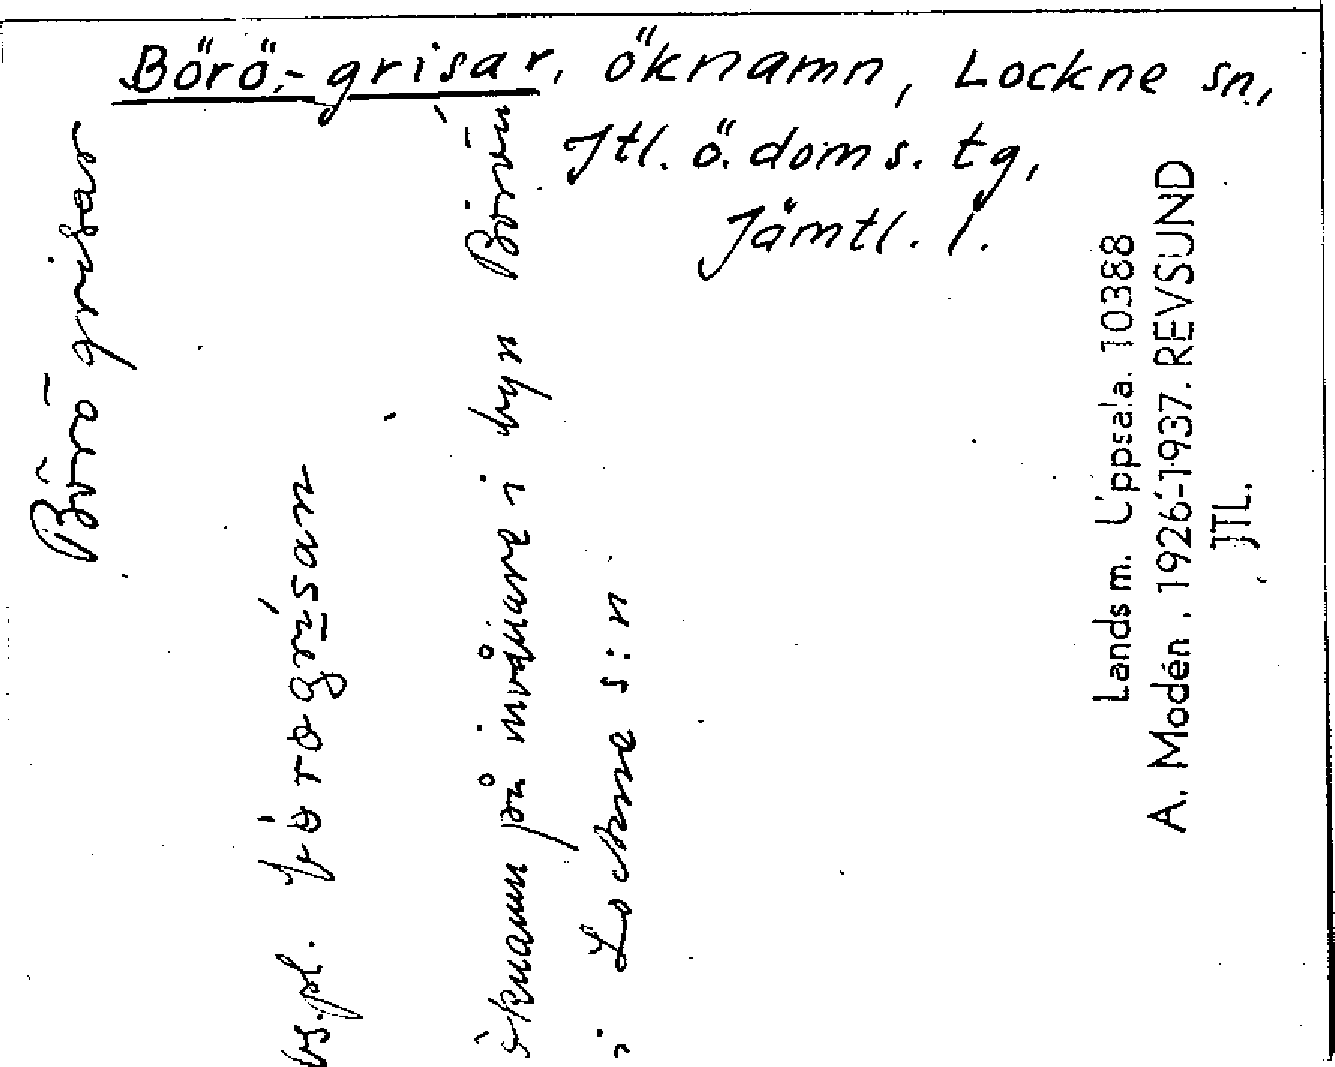 Börö-grisar, öknamn, Lockne sn,
Jtl. ö. doms. tg,
Jämtl. l.
Börö grisar
öknamn på invånarna i byn Börön
i Lockne s:n
Landsm. Uppsala. 10388
A. Modén. 1926-1937. REVSUND
JTL.